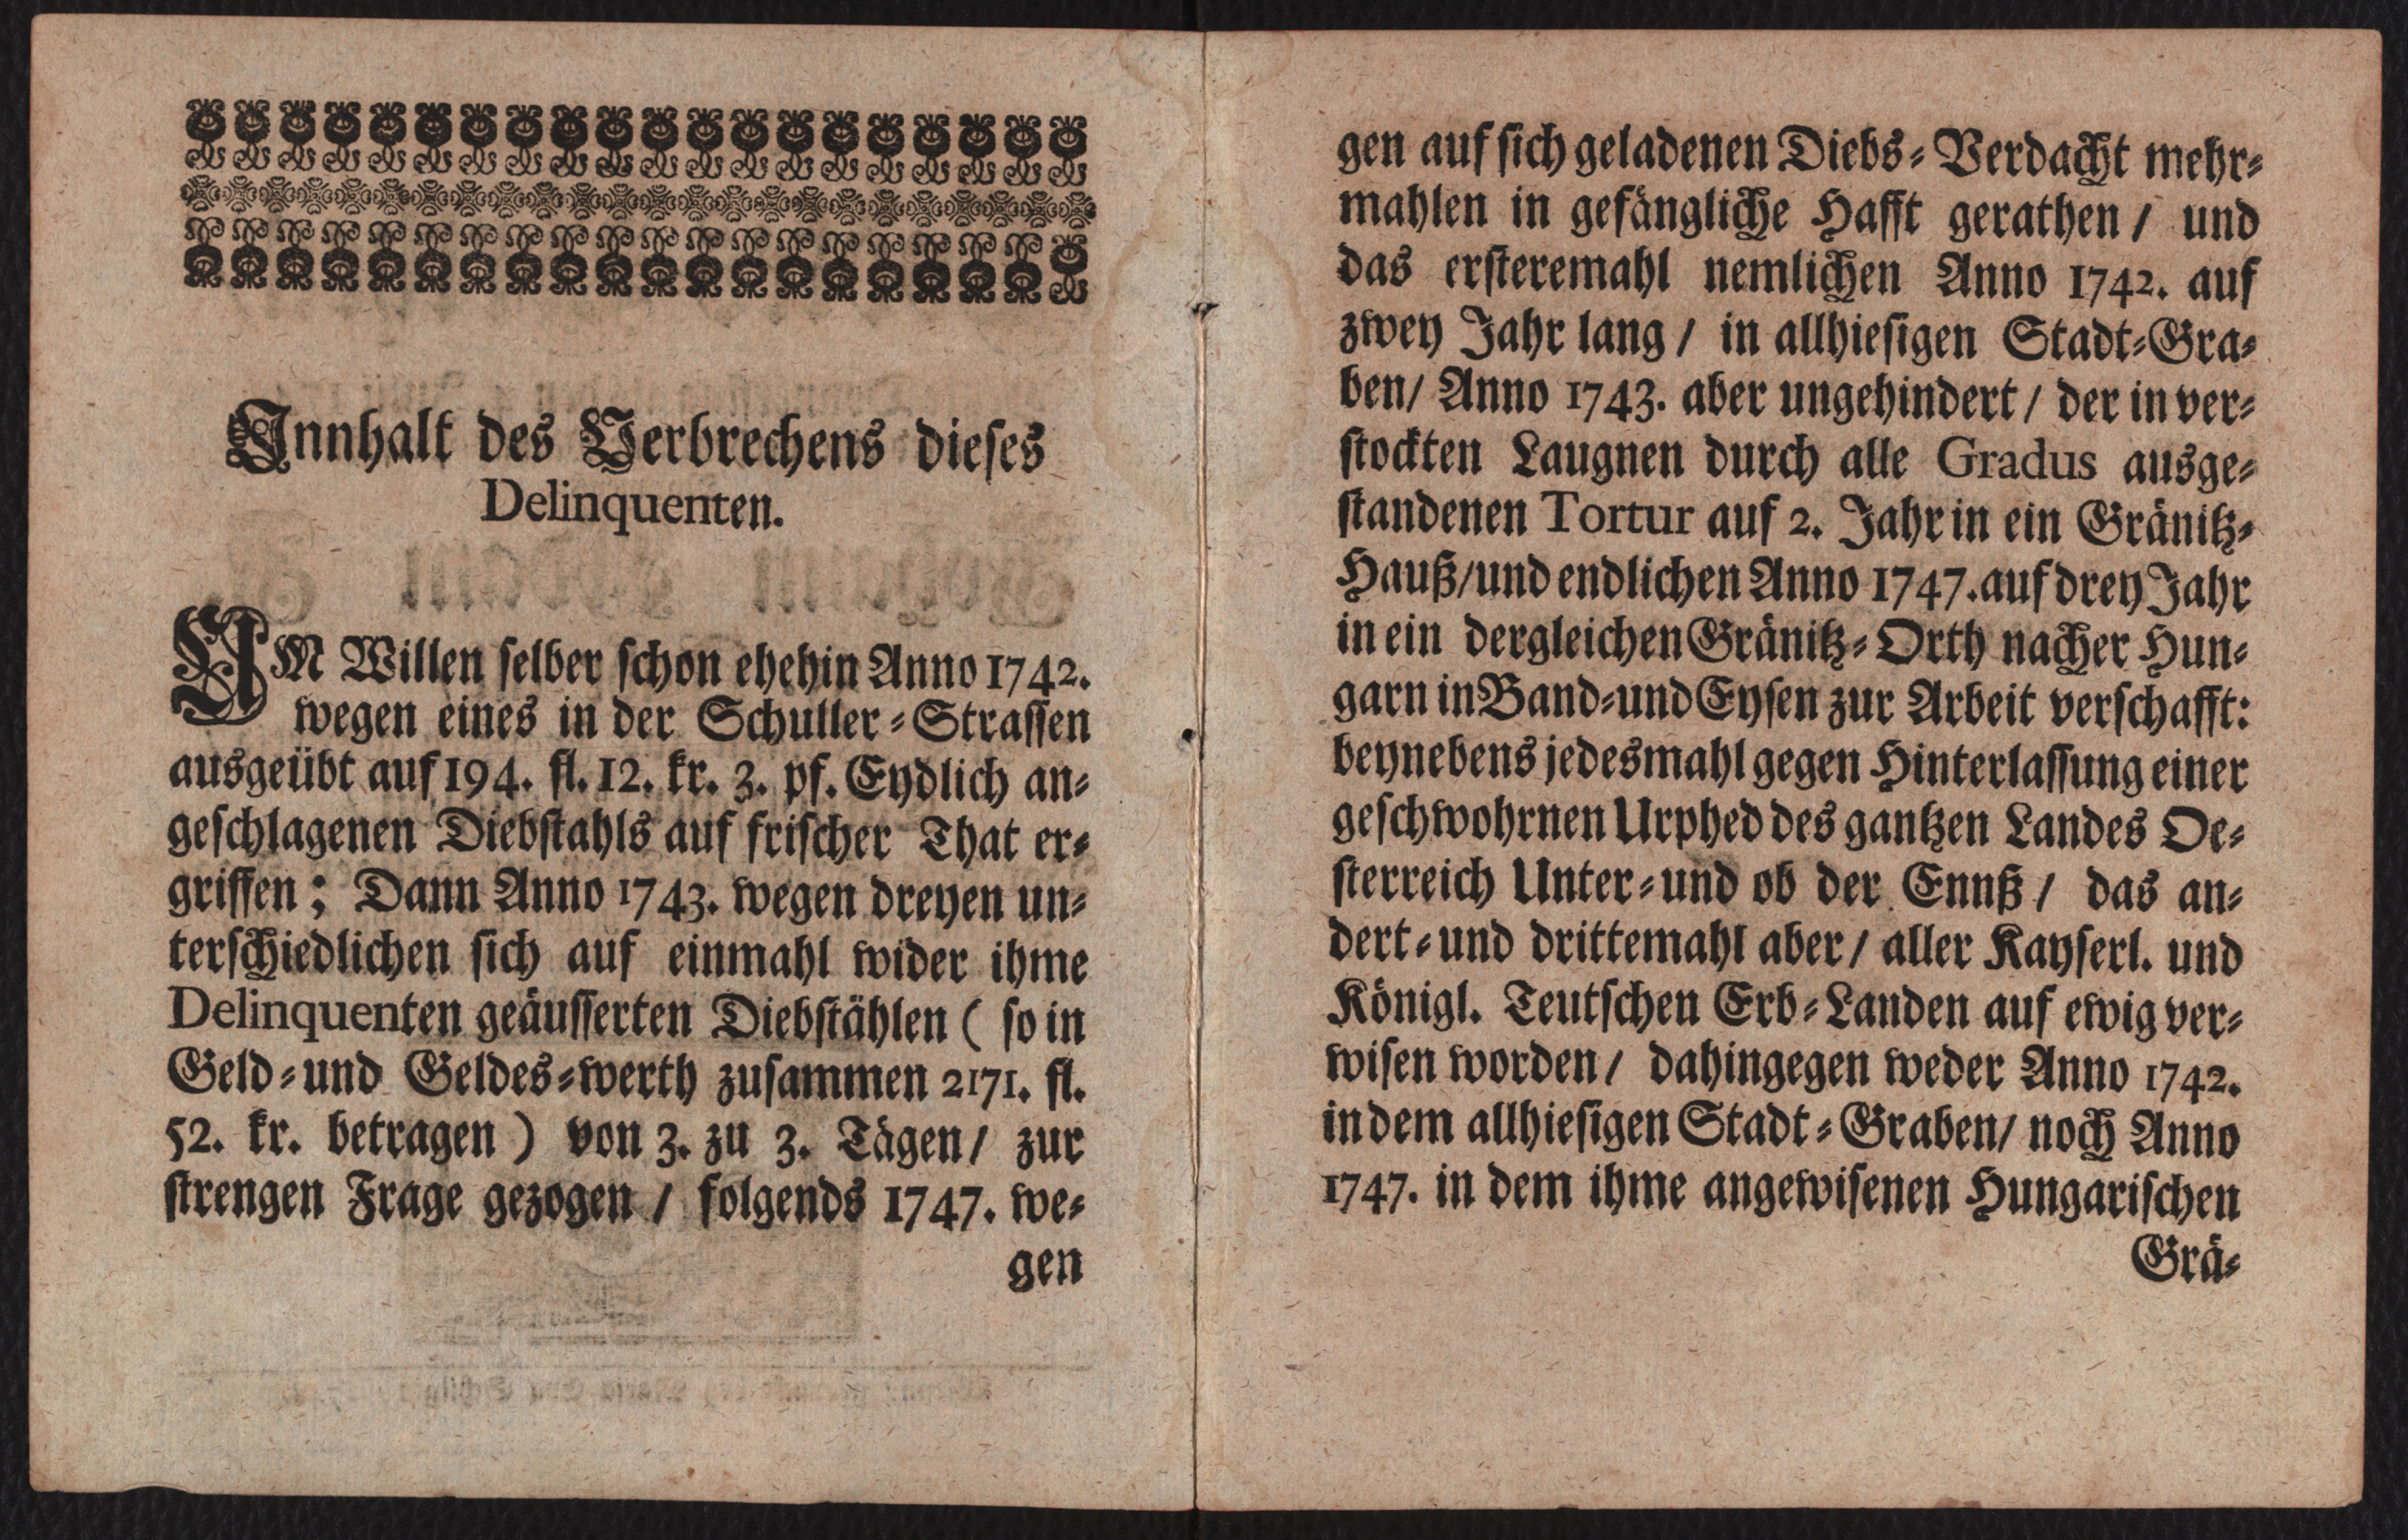 Innhalt des Verbrechens dieses
Delinquenten.
UM Willen selber schon ehehin Anno 1742.
wegen eines in der Schuller-Strassen
ausgeübt auf 194. fl. 12. kr. 3. pf. Eydlich an-
geschlagenen Diebstahls auf frischer That er-
griffen; Dann Anno 1743. wegen dreyen un-
terschiedlichen sich auf einmahl wider ihme
Delinquenten geäusserten Diebstählen ( so in
Geld-und Geldes-werth zusammen 2171. fl.
52. kr. betragen ) von 3. zu 3. Tägen/ zur
strengen Frage gezogen / folgends 1747. we-
gen
gen auf sich geladenen Diebs-Verdacht mehr-
mahlen in gefängliche Hafft gerathen / und
das ersteremahl nemlichen Anno 1742. auf
zwey Jahr lang / in allhiesigen Stadt-Gra-
ben/ Anno 1743. aber ungehindert / der in ver-
stockten Laugnen durch alle Gradus ausge-
standenen Tortur auf 2. Jahr in ein Gränitz-
Hauß/und endlichen Anno 1747. auf drey Jahr
in ein dergleichen Gränitz-Orth nacher Hun-
garn in Band-und Eysen zur Arbeit verschafft:
beynebens jedesmahl gegen Hinterlassung einer
geschwohrnen Urphed des gantzen Landes Oe-
sterreich Unter-und ob der Ennß / das an-
dert-und drittemahl aber / aller Kayserl. und
Königl. Teutschen Erb-Landen auf ewig ver-
wisen worden / dahingegen weder Anno 1742.
in dem allhiesigen Stadt-Graben/ noch Anno
1747. in dem ihme angewisenen Hungarischen
Grä-